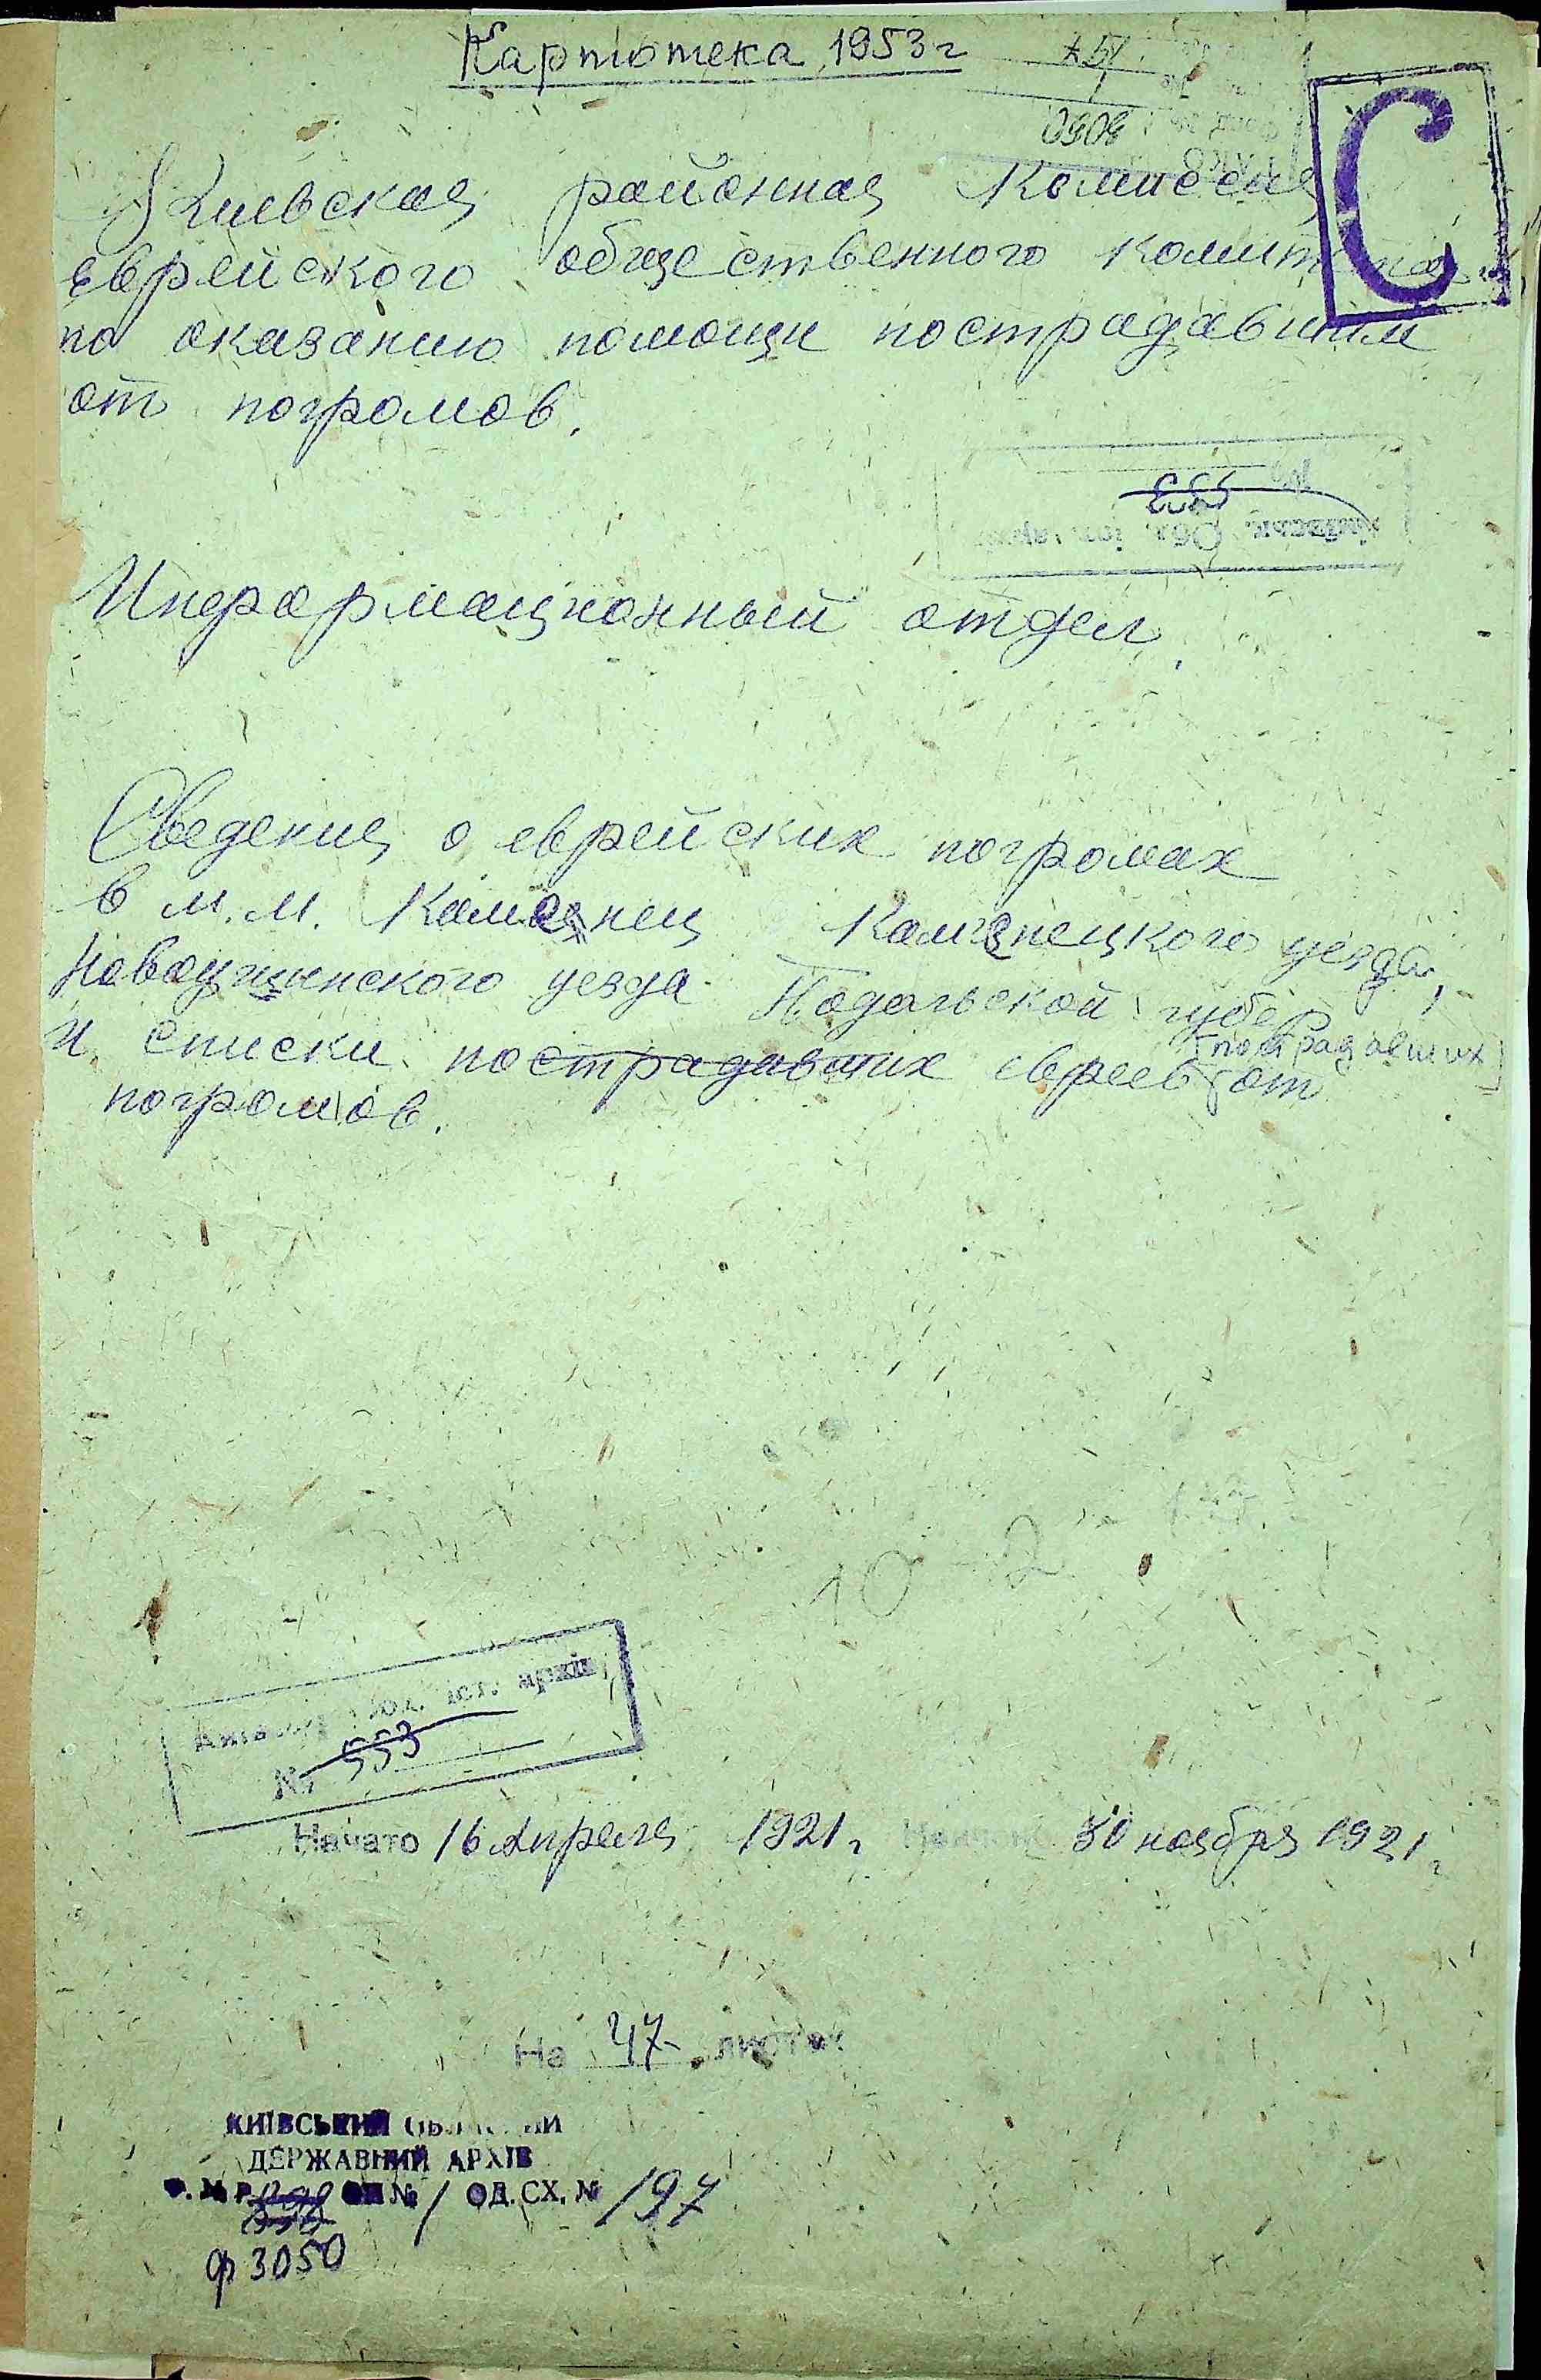 Картотека 1953 г
С
Киевская районная комиссия
еврейского общественного комитета
по оказанию помощи пострадавшим
от погромов.
Информационный отдел.
Сведения о еврейских погромах
в м.м. Каменец Каменецкого уезда,
Новоушицкого уезда Подольской губер
[пострадавших]
и списки пострадавших евреев от
погромов.
10 2
іст. архів
№ 553
Начато 16 Апреля 1921 г. 30 ноября 1921 г.
На 47 листах
КИЇВСЬКИЙ
ДЕРЖАВНИЙ АРХІВ
ОП № 1 ОД. СХ. № 197
ф 3050